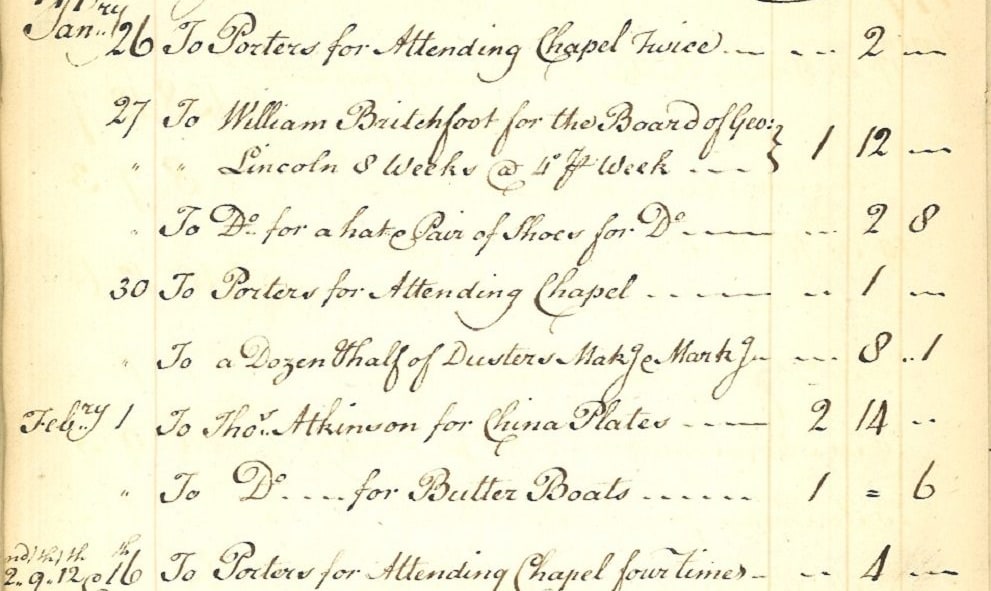 Janry 26 To Porters for Attending Chapel Twice --- --- 2 ---
27 To William Britchfoot for the Board of Geo:
" " Lincoln 8 Weeks @ 4s ⅌ Week --- } 1 12 ---
" To Do. for a hat & Pair of Shoes for Do ---- --- 2 8
30 To Porters for Attending Chapel ------ -- 1 ---
" To a Dozen & half of Dusters Mak.g & Mark.g -- --- 8 .. 1
Febry 1 To Thos. Atkinson for China Plates ---- 2 14 --
" To Do. .... for Butter Boats ------ 1 = 6
2nd, 9th, 12th & 16th To Porters for Attending Chapel four times - -- 4 ---